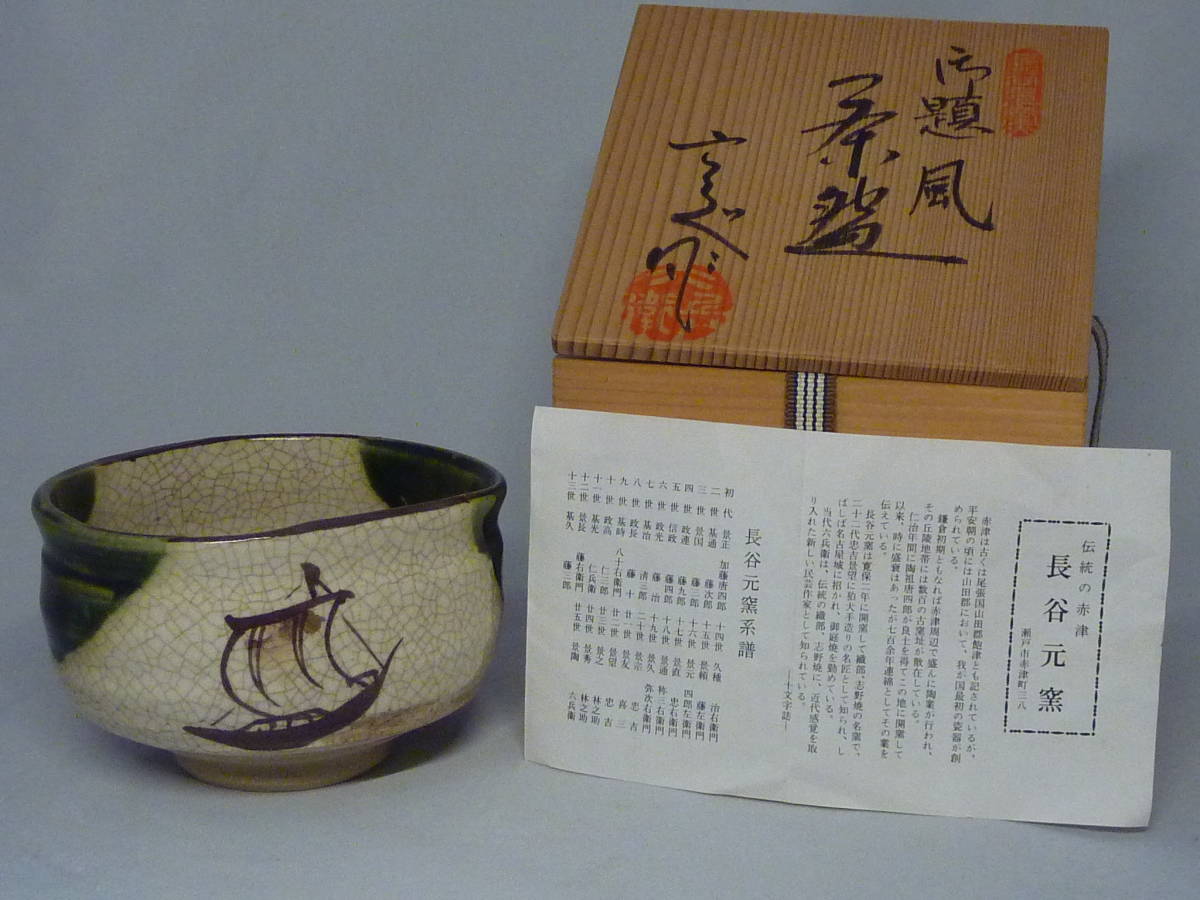 御題 風
茶盌
作
伝統の赤津
長谷元窯
瀬戸市赤津町三八
赤津は古くは尾張国山田郡飽津とも記されているが、
平安朝の頃には山田郡において、我が国最初の瓷器が創
められている。
鎌倉初期ともなれば赤津周辺で盛んに陶業が行われ、
その丘陵地帯には数百の古窯址が散在している。
仁治年間に陶祖唐四郎が良土を得てこの地に開窯して
以来、時に盛衰はあったが七百余年連綿としてその業を
伝えている。
長谷元窯は寛保二年に開窯して織部、志野焼の名窯で、
二十二代忠吉景望に狛犬手造りの名匠として知られ、し
ばしば名古屋城に招かれ、御庭焼を勤めている。
当代六兵衛は、伝統の織部、志野焼に、近代感覚を取
り入れた新しい民芸作家として知られている。
―十文字誌―
長谷元窯系譜
初代 景正 加藤唐四郎
二世 基通 藤次郎
三世 景国 藤三郎
四世 政連 藤九郎
五世 信政 藤四郎
六世 政光 藤治
七世 基治 清郎
八世 政長 藤十
九世 基時 八十右衛門
十世 政高 仁三郎
十一世 基光 仁兵衛
十二世 景長 藤右衛門
十三世 基久 藤三郎
十四世 久種 治右衛門
十五世 景頼 藤左衛門
十六世 景元 四郎左衛門
十七世 景直 忠右衛門
十八世 景通 弥次右衛門
十九世 景久 柞三右衛門
二十世 景宗
廿一世 景友 喜三
廿二世 景望 忠吉
廿三世 景之 林之助
廿四世 景秀 林之助
廿五世 景陶 六兵衛